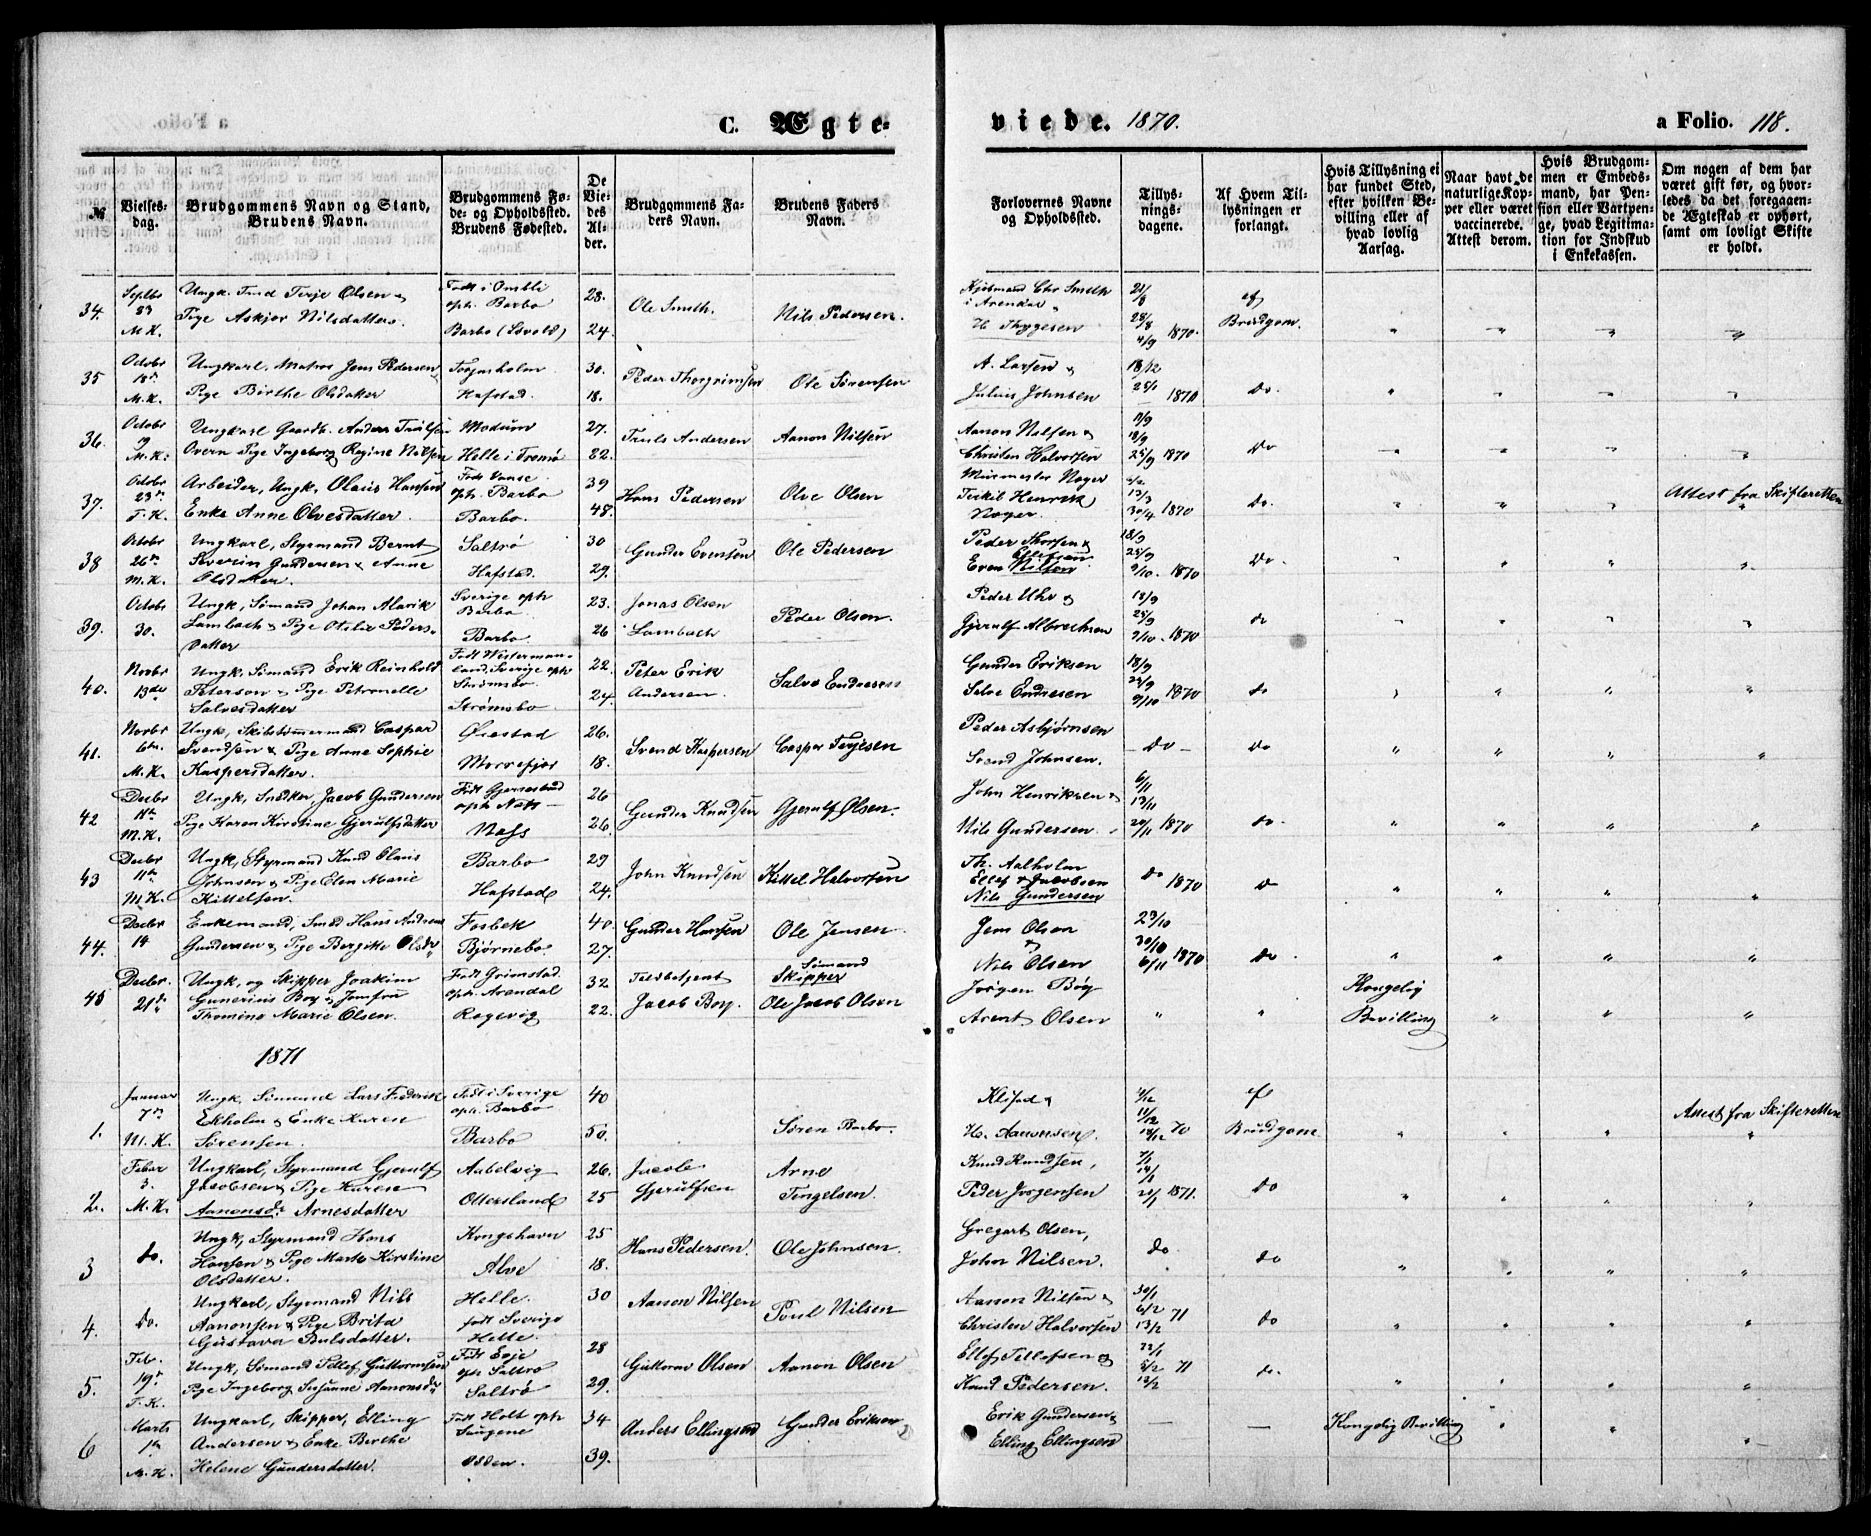 C. Ægte-
viede. 1870.
a Folio. 118.
№
Vielses-dag.
Brudgommens Navn og Stand, Brudens Navn.
Brudgommens Fø-de- og Opholdssted. Brudens Fødested.
De Vie-des Al-der.
Brudgommens Fa-ders Navn.
Brudens Faders Navn.
Forlovernes Navne og Opholdssted.
Tillys-nings-dagene.
Af Hvem Til-lysningen er forlangt.
Hvis Tillysning ei har fundet Sted, efter hvilken Be-villing eller af hvad lovlig Aarsag.
Naar havt de naturlige Kop-per eller været vaccinerede. Attest derom.
Hvis Brudgom-men er Embeds-mand, har Pen-sion eller Vartpen-ge, hvad Legitima-tion for Indskud i Enkekassen.
Om nogen af dem har været gift før, og hvor-ledes da det foregaaen-de Ægteskab er ophørt, samt om lovligt Skifte er holdt.
34. Septbr M.K. Ungk. Terje Olsen & Pige Askjer Nilsdatter. Født i opt. Barbo Barbo 28. 24. Ole Smith. Nils Pedersen. Kjøbmand Chr Smith i Arendal H. Thygesen 21/8 28/8 4/9 1870. af Brudgom.
35 Octobr M.K. Ungkarl, Matros Jens Pedersen Pige Birthe Olsdatter Hafstad. 30. 18. Peder Thorgrimsen Ole Sørensen A. Larsen & Julius Johnsen 1870 Do
36. Octobr 9 M.K. Ungkarl Gaardb. Anders Trulsen Overn Pige Ingeborg Regine Nilsen Modum Helle i Tromø 27. 22. Truls Andersen Aanon Nilsen Aanon Nilsen & Christen Halvorsen 11/9 18/9 25/9 1870 Do
37. Octobr 23de F.K. Arbeider, Ungk. Olaus Hansen Enke Anne Olvesdatter. Født Vanse opt. Barbo Barbo. 39 48. Hans Pedersen Olve Olsen Murmester Noger Terkil Henrik Noger. 1870 Do. Attest fra Skifteretten
38 Octobr 26de M.K. Ungkarl, Styrmand Bernt Severin Gundersen & Anne Olsdatter. Saltrø Hafstad. 30 29. Gunder Evensen Ole Pedersen Peder Thorsen & Even Nilson Ellefsen 18/9 25/9 9/10. 1870 Do.
39. Octobr 30. Ungk, Sømand Johan Alarik Lambach & Pige Otelie Peders-datter Sverige opt Barbo Barbo 23. 26 Jonas Olsen Lambach Peder Olsen. Peder Uhr & Gjerulf Albrechtsen 18/9 25/9 9/10. 1870 do
40. Novbr 13de Ungk. Sømand Erik Reinhold Peterson & Pige Petronelle Salvesdatter Født Westerman-land, Sverige opt Strømsbo Strømsbo 22 24. Peter Erik Andersen. Salve Endresen Gunder Eriksen Salve Endresen 18/9 25/9 9/10 1870 do
41. Novbr 6te. M.K. Ungk, Skibstømmermand Caspar Svendsen & Pige Anne Sophie Kaspersdatter. Øiestad Morrefjær 26. 18. Svend Kaspersen Casper Terjesen Peder Asbjørnsen Svend Johnsen. - Do - Do
42 Decbr M.K. Ungk, Snedker Jacob Gundersen Pige Karen Kirstine Gjerulfsdatter Født Gjerrestad opt Næs Næss 26 26. Gunder Knudsen Gjerulf Olsen. John Henriksen & Nils Gundersen. 6/11 13/11 20/11 1870 do.
43 Decbr 11te M.K. Ungk, Styrmand Knud Olaus Johnsen & Pige Elen Marie Kittelsen. Barbo Hafstad. 29 24. John Knudsen Kittel Halvorsen Th. Aalholm Ellef Jacobsen Nils Gundersen Do 1870 Do
44. Decbr 14 Enkemand, Smed Hans Andreas Gundersen & Pige Bergitte Olsdr Fosbek Bjørnebo. 40. 27. Gunder Hansen Ole Jensen. Jens Olsen & Nils Olsen 23/10 30/10 6/11 1870 Do.
45 Decbr. 21de Ungk, og Skipper Joakim Gunerius Boy & Jomfru Thomine Marie Olsen. Født Grimstad opt. Arendal Kogevig 32 22. Toldbetjent Jacob Boy. Sømand Skipper Ole Jacob Olsen Jørgen Boy Arent Olsen Kongelig Bevilling
1871
1. Januar 7de M.K. Ungk, Sømand Lars Frederik Ekholm & Enke Karen Sørensen. Født i Sverige opt. Barbo Barbo 40 50. Søren Barbo. Klisad & H. Aanonsen. 4/12 11/12 18/12 70 af Brudgom Attest fra Skifteretten
2. Febr 3. M.K. Ungkarl, Styrmand Gjerulf Jacobsen & Pige Karen Aanonsdr Arnesdatter Aabelvig Ottersland 26. 25 Jacob Gjerulfsen Arne Tengelsen. Knud Knudsen, Peder Jørgensen 1871. Do
3 do. Ungk, Styrmand Hans Hansen & Pige Marte Kirstine Olsdatter. Kongshavn Alve 25 18. Hans Pedersen. Ole Johnsen. Gregert Olsen, John Nilsen. do. do
4. Do. Ungkarl, Styrmand Nils Aanonsen & Pige Brita Gustava Paulsdatter. Helle. født Sverige Helle. 30 28 Aanon Nilsen Poul Nilsen Aanon Nilsen & Christen Halvorsen 30/1 6/2 13/2 71 do
5. Febr. 19de F.K. Ungk, Sømand Tellef Guttormsen Pige Ingeborg Susanne Aanonsdr Født Evje opt Saltrø Saltrø 29. Guttorm Olsen Aanon Olsen Ellef Tellefsen & Knud Pedersen. 71 do.
6 Marts 1te M.K. Ungkarl, Skipper, Elling Andersen & Enke Berthe Helene Gundersdatter. Født Holt opt Saugene Odden. 34 39. Anders Ellingsen Gunder Eriksen Erik Gundersen & Elling Ellingsen Kongelig Bevilling